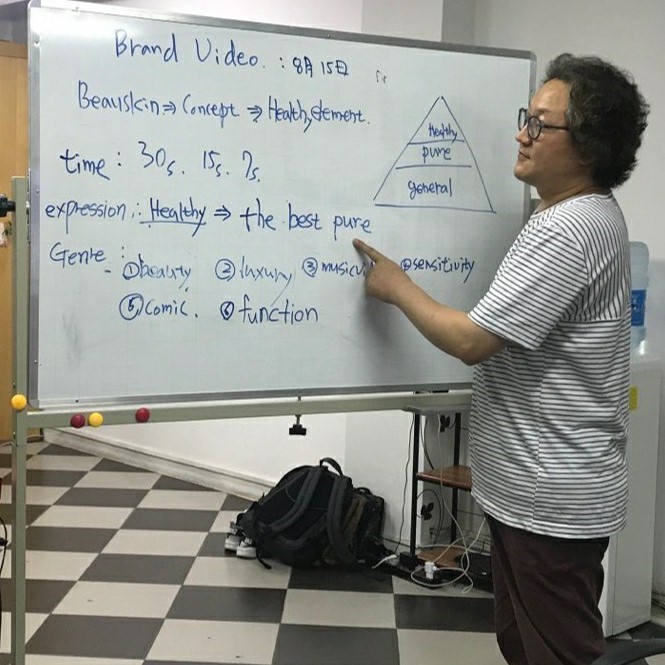 Brand Video. : 8月15日
Beauskin ⇒ Concept ⇒ Healthy, element.
time : 30s. 15s. 7s.
expression : Healthy ⇒ the best pure
Genre : ① beauty ② luxury ③ music ④ sensitivity
⑤ Comic. ⑥ function
Healthy
pure
general